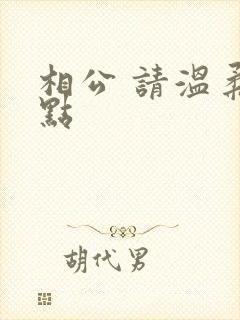 相公 請溫柔
點
胡代男